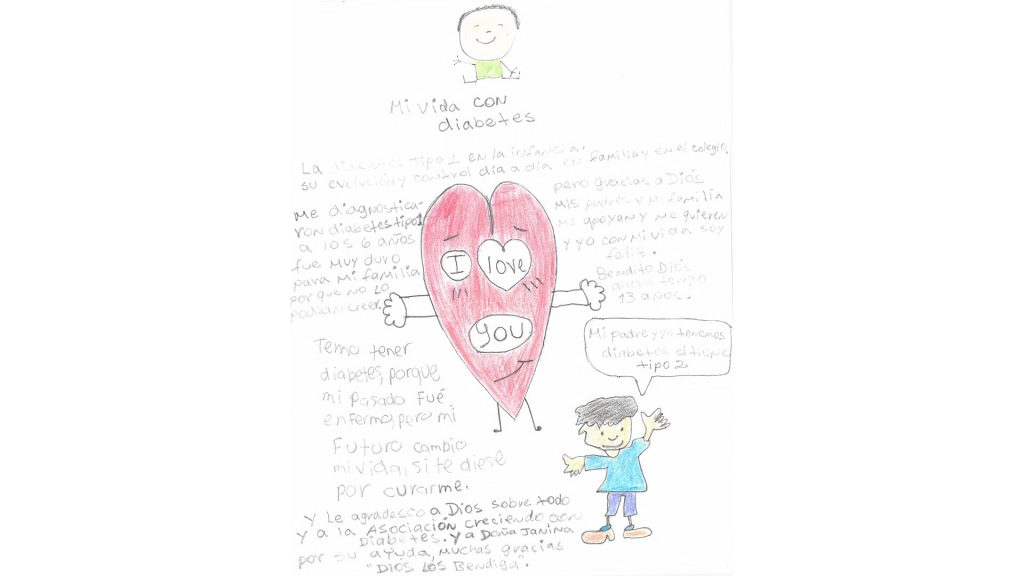 Mi vida con
diabetes
La diabetes tipo 1 en la infancia.
su evolución y control día a día en familia y en el colegio,
Me diagnostica-
ron diabetes tipo 1
a los 6 años
fue muy duro
para mi familia
por que no lo
podian creer.
pero gracias a Diós
Mis padres y mi familia
me apoyan y me quieren
y yo con mi vida soy
feliz.
Bendito Diós
ahora tengo
13 años.
I love
you
Mi padre y yo tenemos
diabetes el tiene
tipo 2
Temo tener
diabetes, porque
mi pasado fué
enfermo, pero mi
Futuro cambio
mi vida, si te diese
por curarme.
y Le agradesco a Dios sobre todo
y a la Asociación creciendo con
Diabetes. y a Doña Janina
por su ayuda, muchas gracias
"DIÓS LOS Bendiga".